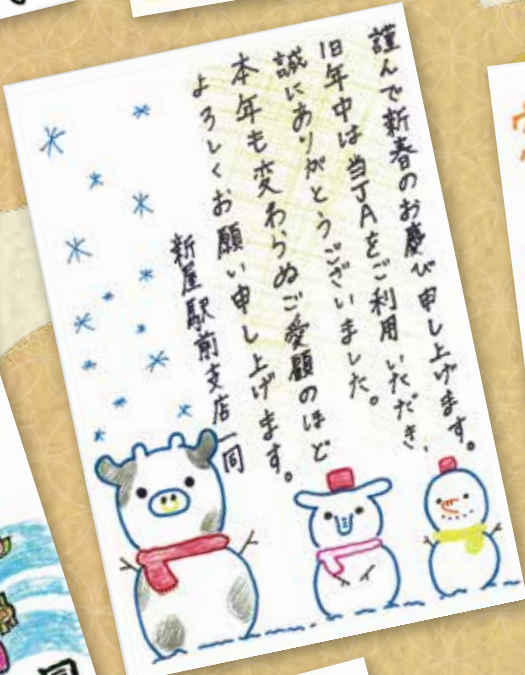 謹んで新春のお慶び申し上げます。
旧年中は当JAをご利用いただき、
誠にありがとうございました。
本年も変わらぬご愛顧のほど
よろしくお願い申し上げます。
新屋駅前支店一同